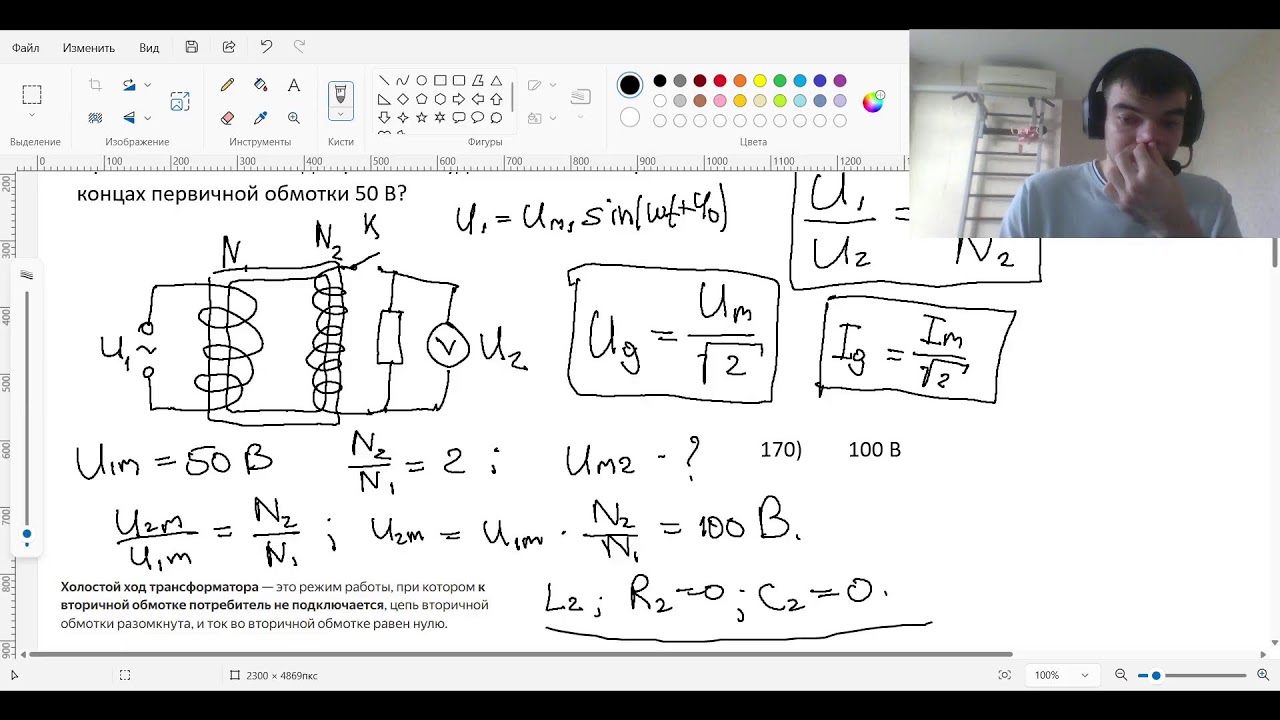 Файл Изменить Вид
Выделение Изображение Инструменты Кисти Фигуры Цвета
0 100 200 300 400 500 600 700 800 900 1000 1100 1200
200
300
400
500
600
700
800
900
концах первичной обмотки 50 В?
U₁ = Uₘ₁ sin(ωt+φ₀)
U₁/U₂ = N₂
N N₂ K
U₁ ~ V U₂
Ug = Uₘ/√2
Ig = Iₘ/√2
U₁ₘ = 50 В N₂/N₁ = 2 ; Uₘ₂ - ?
170) 100 В
U₂ₘ/U₁ₘ = N₂/N₁ ; U₂ₘ = U₁ₘ · N₂/N₁ = 100 В.
Холостой ход трансформатора — это режим работы, при котором к
вторичной обмотке потребитель не подключается, цепь вторичной
обмотки разомкнута, и ток во вторичной обмотке равен нулю.
L₂ ; R₂=0 ; C₂=0.
2300 × 4869пкс
100%